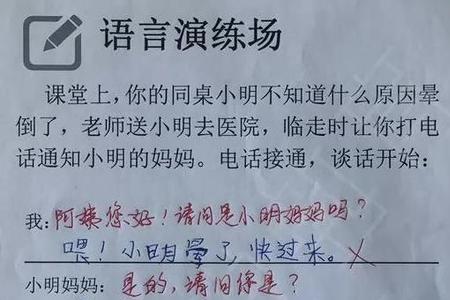 语言演练场
课堂上，你的同桌小明不知道什么原因晕
倒了，老师送小明去医院，临走时让你打电
话通知小明的妈妈。电话接通，谈话开始：
我：阿姨您好！请问是小明妈妈吗？
喂！小明晕了，快过来。
小明妈妈：是的，请问你是？